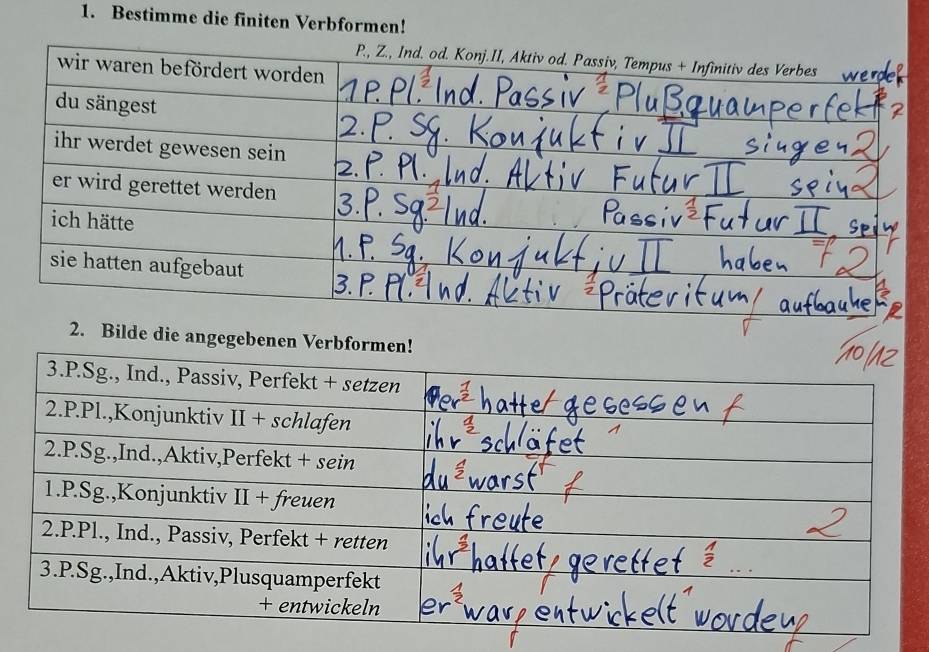 1. Bestimme die finiten Verbformen!
P., Z., Ind. od. Konj.II, Aktiv od. Passiv, Tempus + Infinitiv des Verbes
wir waren befördert worden 1P. Pl. ½ Ind. Passiv ½ Plußquamperfekt werden 2
du sängest 2. P. Sg. Konjuktiv II singen 2
ihr werdet gewesen sein 2. P. Pl. Ind. Aktiv Futur II sein 2
er wird gerettet werden 3. P. Sg. ½ Ind. Passiv ½ Futur II sein f
ich hätte 1. P. Sg. Konjuktiv II haben 2
sie hatten aufgebaut 3. P. Pl. ½ Ind. Aktiv ½ Präteritum f aufbauhen
10/12
2. Bilde die angegebenen Verbformen!
3.P.Sg., Ind., Passiv, Perfekt + setzen er ½ hattet gesessen f
2.P.Pl.,Konjunktiv II + schlafen ihr ½ schläfet 1
2.P.Sg.,Ind.,Aktiv,Perfekt + sein du ½ warst f
1.P.Sg.,Konjunktiv II + freuen ich freute 2
2.P.Pl., Ind., Passiv, Perfekt + retten ihr ½ hattet gerettet ½ ...
3.P.Sg.,Ind.,Aktiv,Plusquamperfekt
+ entwickeln er ½ war entwickelt 1 worden